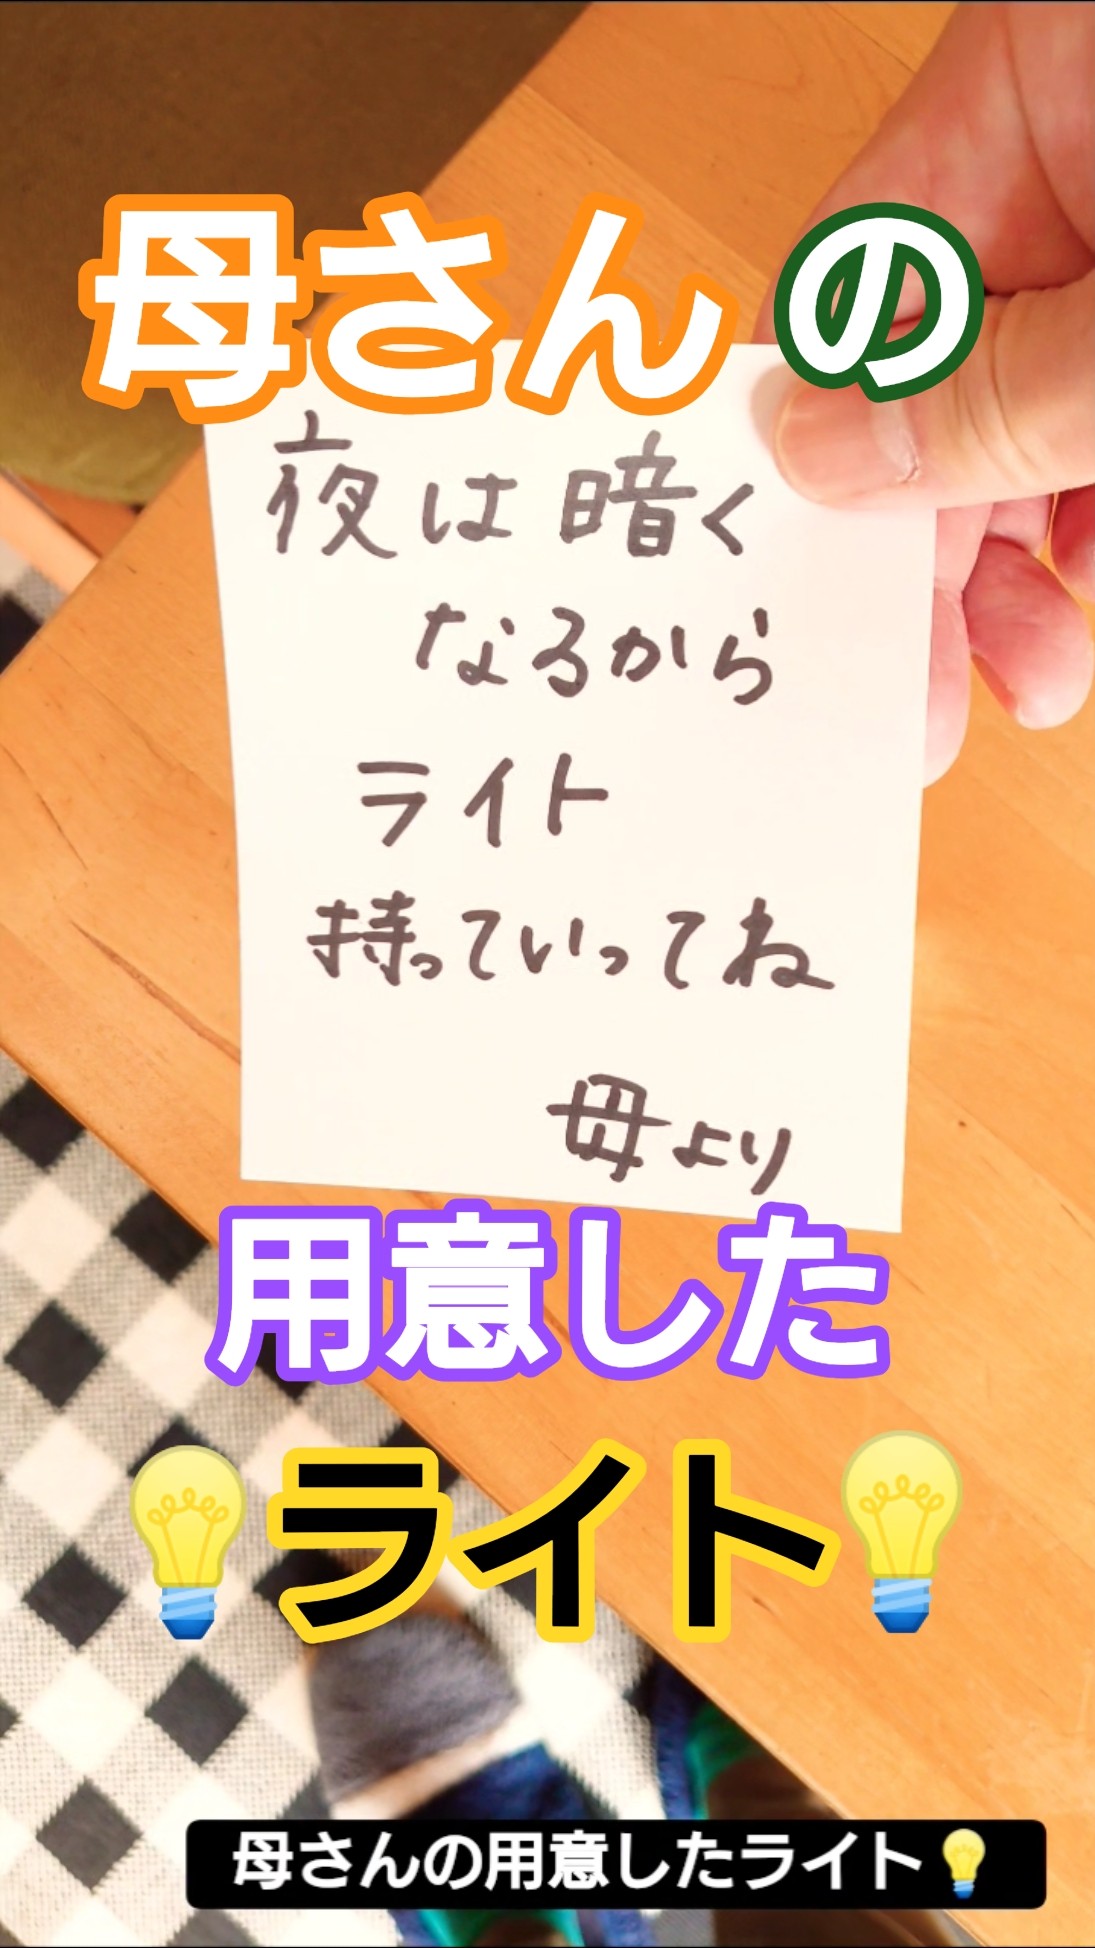 母さんの
夜は暗く
なるから
ライト
持っていってね
母より
用意した
💡ライト💡
母さんの用意したライト💡